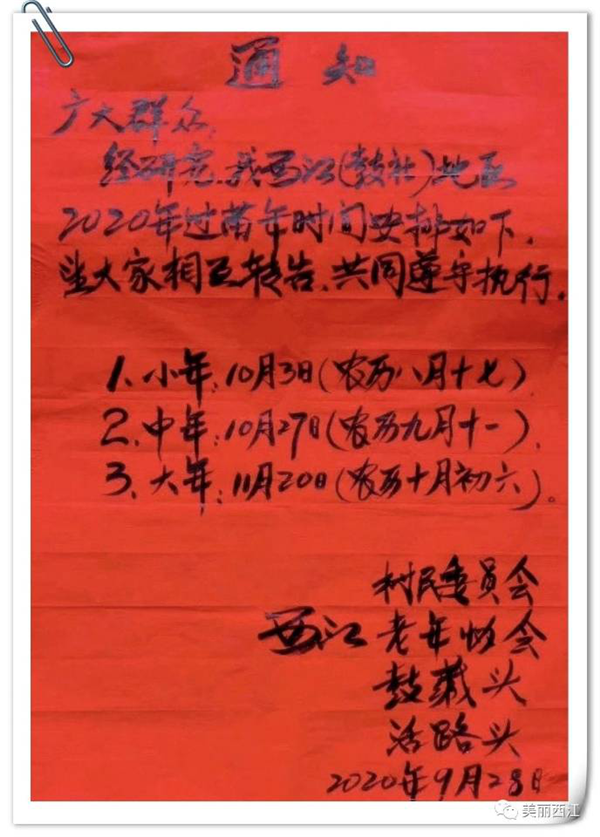 通知
广大群众,
经研究,我西江(鼓社)地区
2020年过苗年时间安排如下,
望大家相互转告、共同遵守执行。
1、小年:10月3日(农历八月十七)
2、中年:10月27日(农历九月十一)、
3、大年:11月20日(农历十月初六)。
村民委员会
西江老年协会
鼓藏头
活路头
2020年9月28日
美丽西江